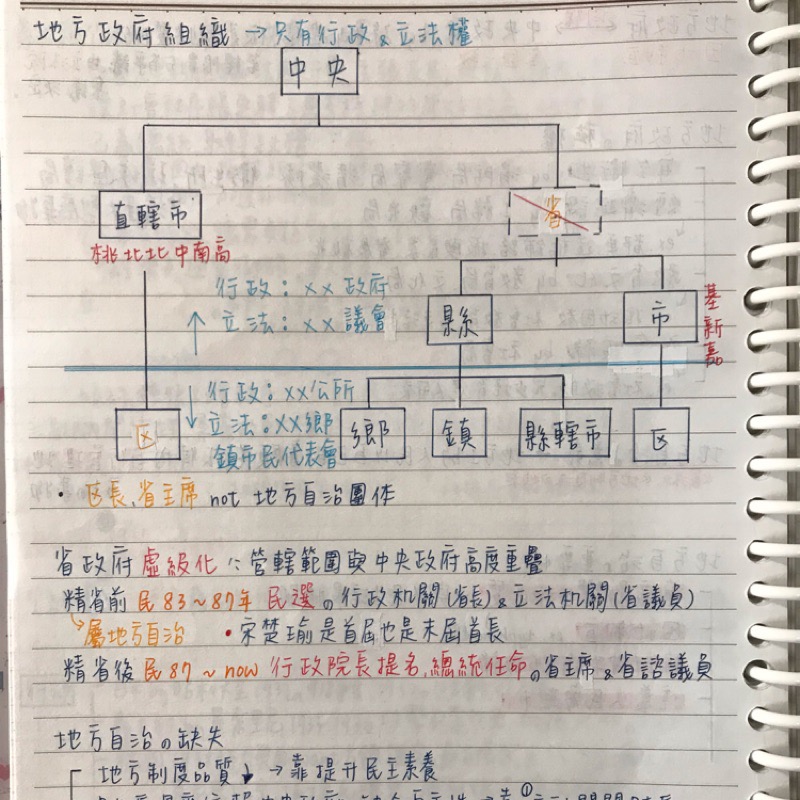 地方政府組織 → 只有行政 & 立法權
中央
直轄市
省
桃北北中南高
行政：xx 政府
縣
市
基新嘉
↑ 立法：xx 議會
↓ 行政：xx公所
区
立法：xx鄉
鎮市民代表會
鄉
鎮
縣轄市
区
• 区長、省主席 not 地方自治團体
省政府 虛級化 ∵ 管轄範圍與中央政府高度重疊
精省前 民83~87年 民選の行政机關(省長)&立法机關(省議員)
↳屬地方自治 • 宋楚瑜是首屆也是末屆首長
精省後 民87 ~ now 行政院長提名、總統任命の省主席 & 省諮議員
地方自治の缺失
地方制度品質↓ → 靠提升民主素養